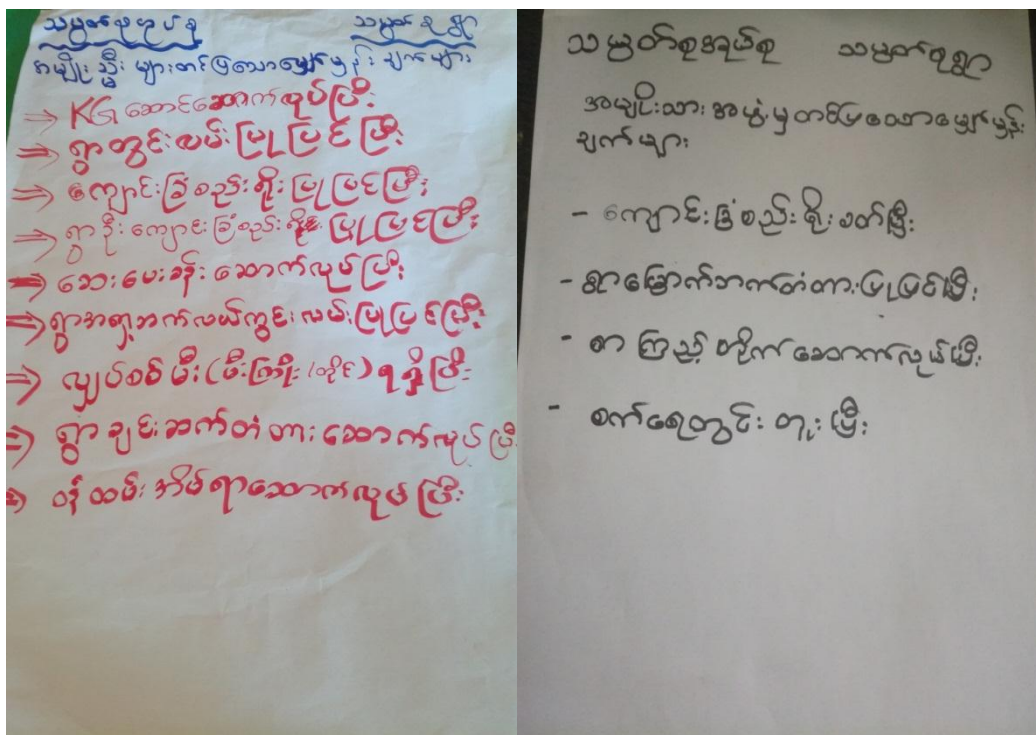 သမ္ဗတ်စုအုပ်စု သမ္ဗတ်စုရွာ
အမျိုးသ္မီးများတင်ပြသောမျှော်မှန်းချက်များ
⇒ KG ဆောင်ဆောက်လုပ်ပြီး
⇒ ရွာတွင်းလမ်းပြုပြင်ပြီး
⇒ ကျောင်းခြံစည်းရိုးပြုပြင်ပြီး
⇒ ရွာဦးကျောင်းခြံစည်းရိုးပြုပြင်ပြီး
⇒ ဆေးပေးခန်းဆောက်လုပ်ပြီး
⇒ ရွာအရှေ့ဘက်လယ်ကွင်းလမ်းပြုပြင်ပြီး
⇒ လျှပ်စစ်မီး(မီးကြိုး/တိုင်)ရရှိပြီး
⇒ ရွာချင်းဆက်တံတားဆောက်လုပ်ပြီး
⇒ ဝန်ထမ်းအိမ်ရာဆောက်လုပ်ပြီး
သမ္ဗတ်စုအုပ်စု သမ္ဗတ်စုရွာ
အမျိုးသားအဖွဲ့မှတင်ပြသောမျှော်မှန်း
ချက်များ
- ကျောင်းခြံစည်းရိုးခတ်ပြီး
- ရွာမြောက်ဘက်တံတားပြုပြင်ပြီး
- စာကြည့်တိုက်ဆောက်လုပ်ပြီး
- စက်ရေတွင်းတူးပြီး